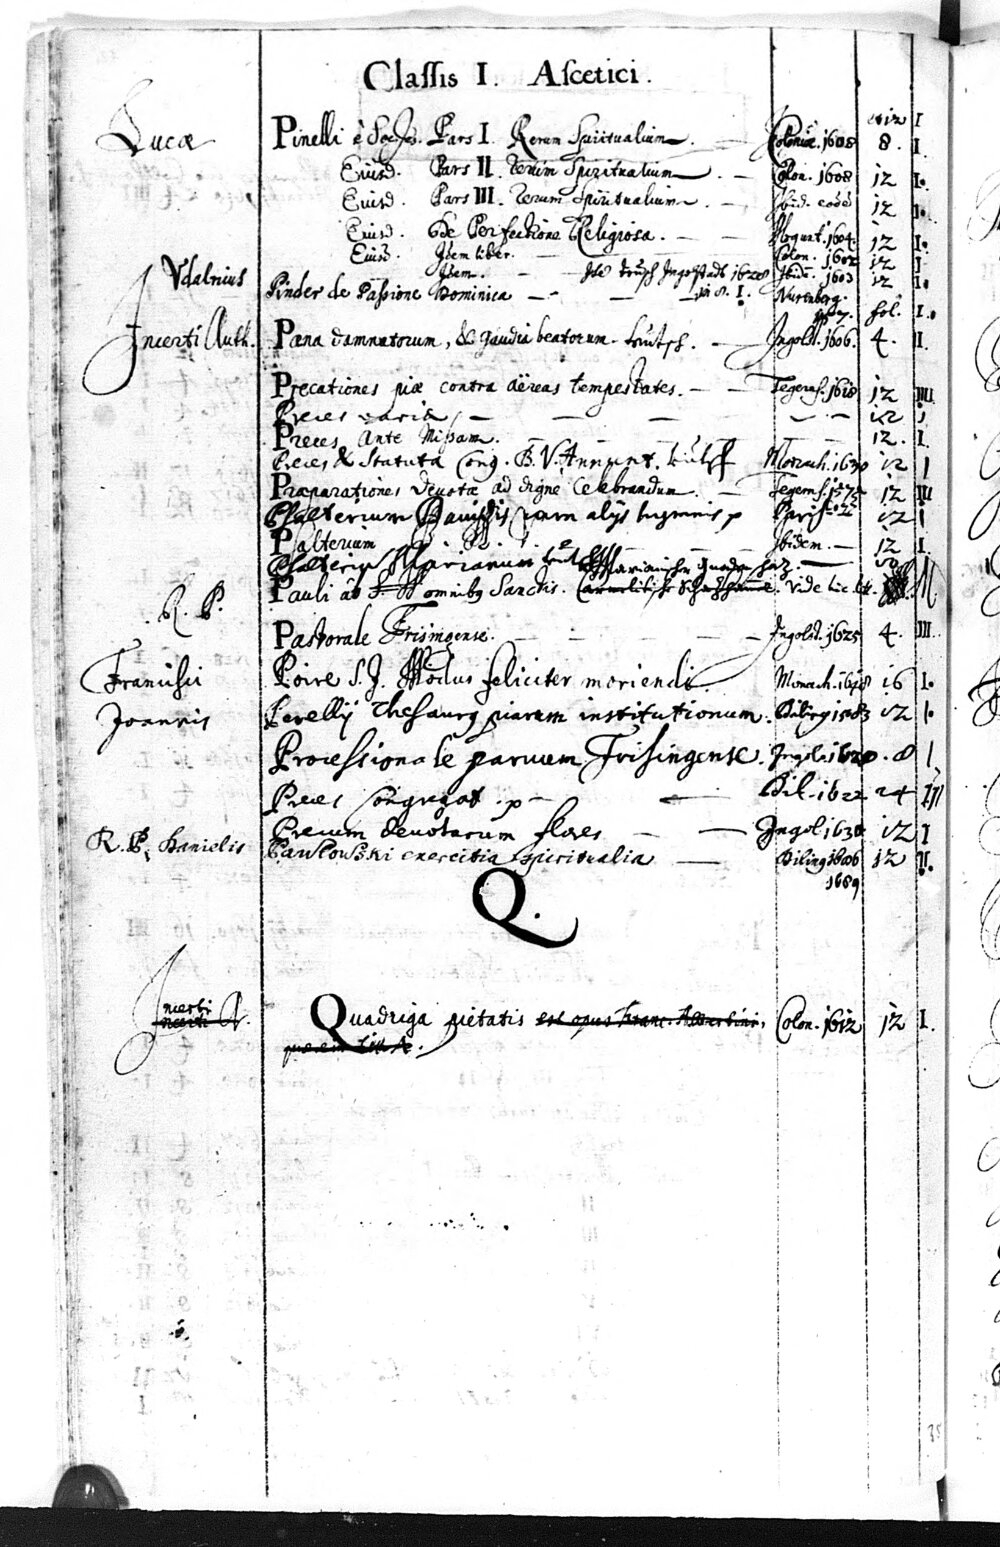 Classis I. Ascetici.
Lucæ Pinelli è Soc. Jes. Pars I. Rerum Spiritualium. — Coloniæ. 1608 8. I.
Eiusd. Pars II. rerum Spiritualium. — Colon. 1608 12 I.
Eiusd. Pars III. rerum Spiritualium. — Ibid. 12 I.
Eiusd. de Perfectione Religiosa. — — Mogunt. 1604. 12 I.
Eiusd. Idem liber. — — Colon. 1602 12 I
Idem. — — Ibid. 1603 12 I.
Vdalricus Pinder de Passione Dominica — — — in 8. I. Nurenberg. fol. I.
Incerti Auth. Pæna damnatorum, & gaudia beatorum. teutsch. — Ingolst. 1606. 4. II.
Precationes piæ contra aëreas tempestates. — — Tegerns. 1618 12 IIII.
Preces variæ — — — 12 I
Preces ante Missam. — — — 12. I.
Preces & Statuta Cong. B. V. Annunt. teutsch Monach. 1630 12 I
Præparationes devotæ ad digne celebrandum. — Tegerns. 1575 12 III
Psalterium Davidis cum alijs hymnis Paris. 12 I
Psalterium Ibidem. — 12 I.
Psalterium Marianum
R. P. Pauli ab omnibus Sanctis. Carmelitische . vide lit.
Pastorale Frisingense. — — — Ingolst. 1625 4. III.
Francisci Poire S. J. Modus feliciter moriendi. Monach. 16 I.
Joannis Perellij Thesaurus piarum institutionum. Diling 1583 12 I.
Processionale parvum Frisingense. Ingols. 1620. 8 I
Preces Congregat. — — Dil. 1622 24 III
Precum devotarum flores — — Ingol. 1630 12 I
R. P. Danielis Pawlowski exercitia spiritualia — Diling 12 II.
1689
Q.
Incerti
Incerti A. Quadriga pietatis est opus Franc. Albertini, Colon. 1612 12 I.
35